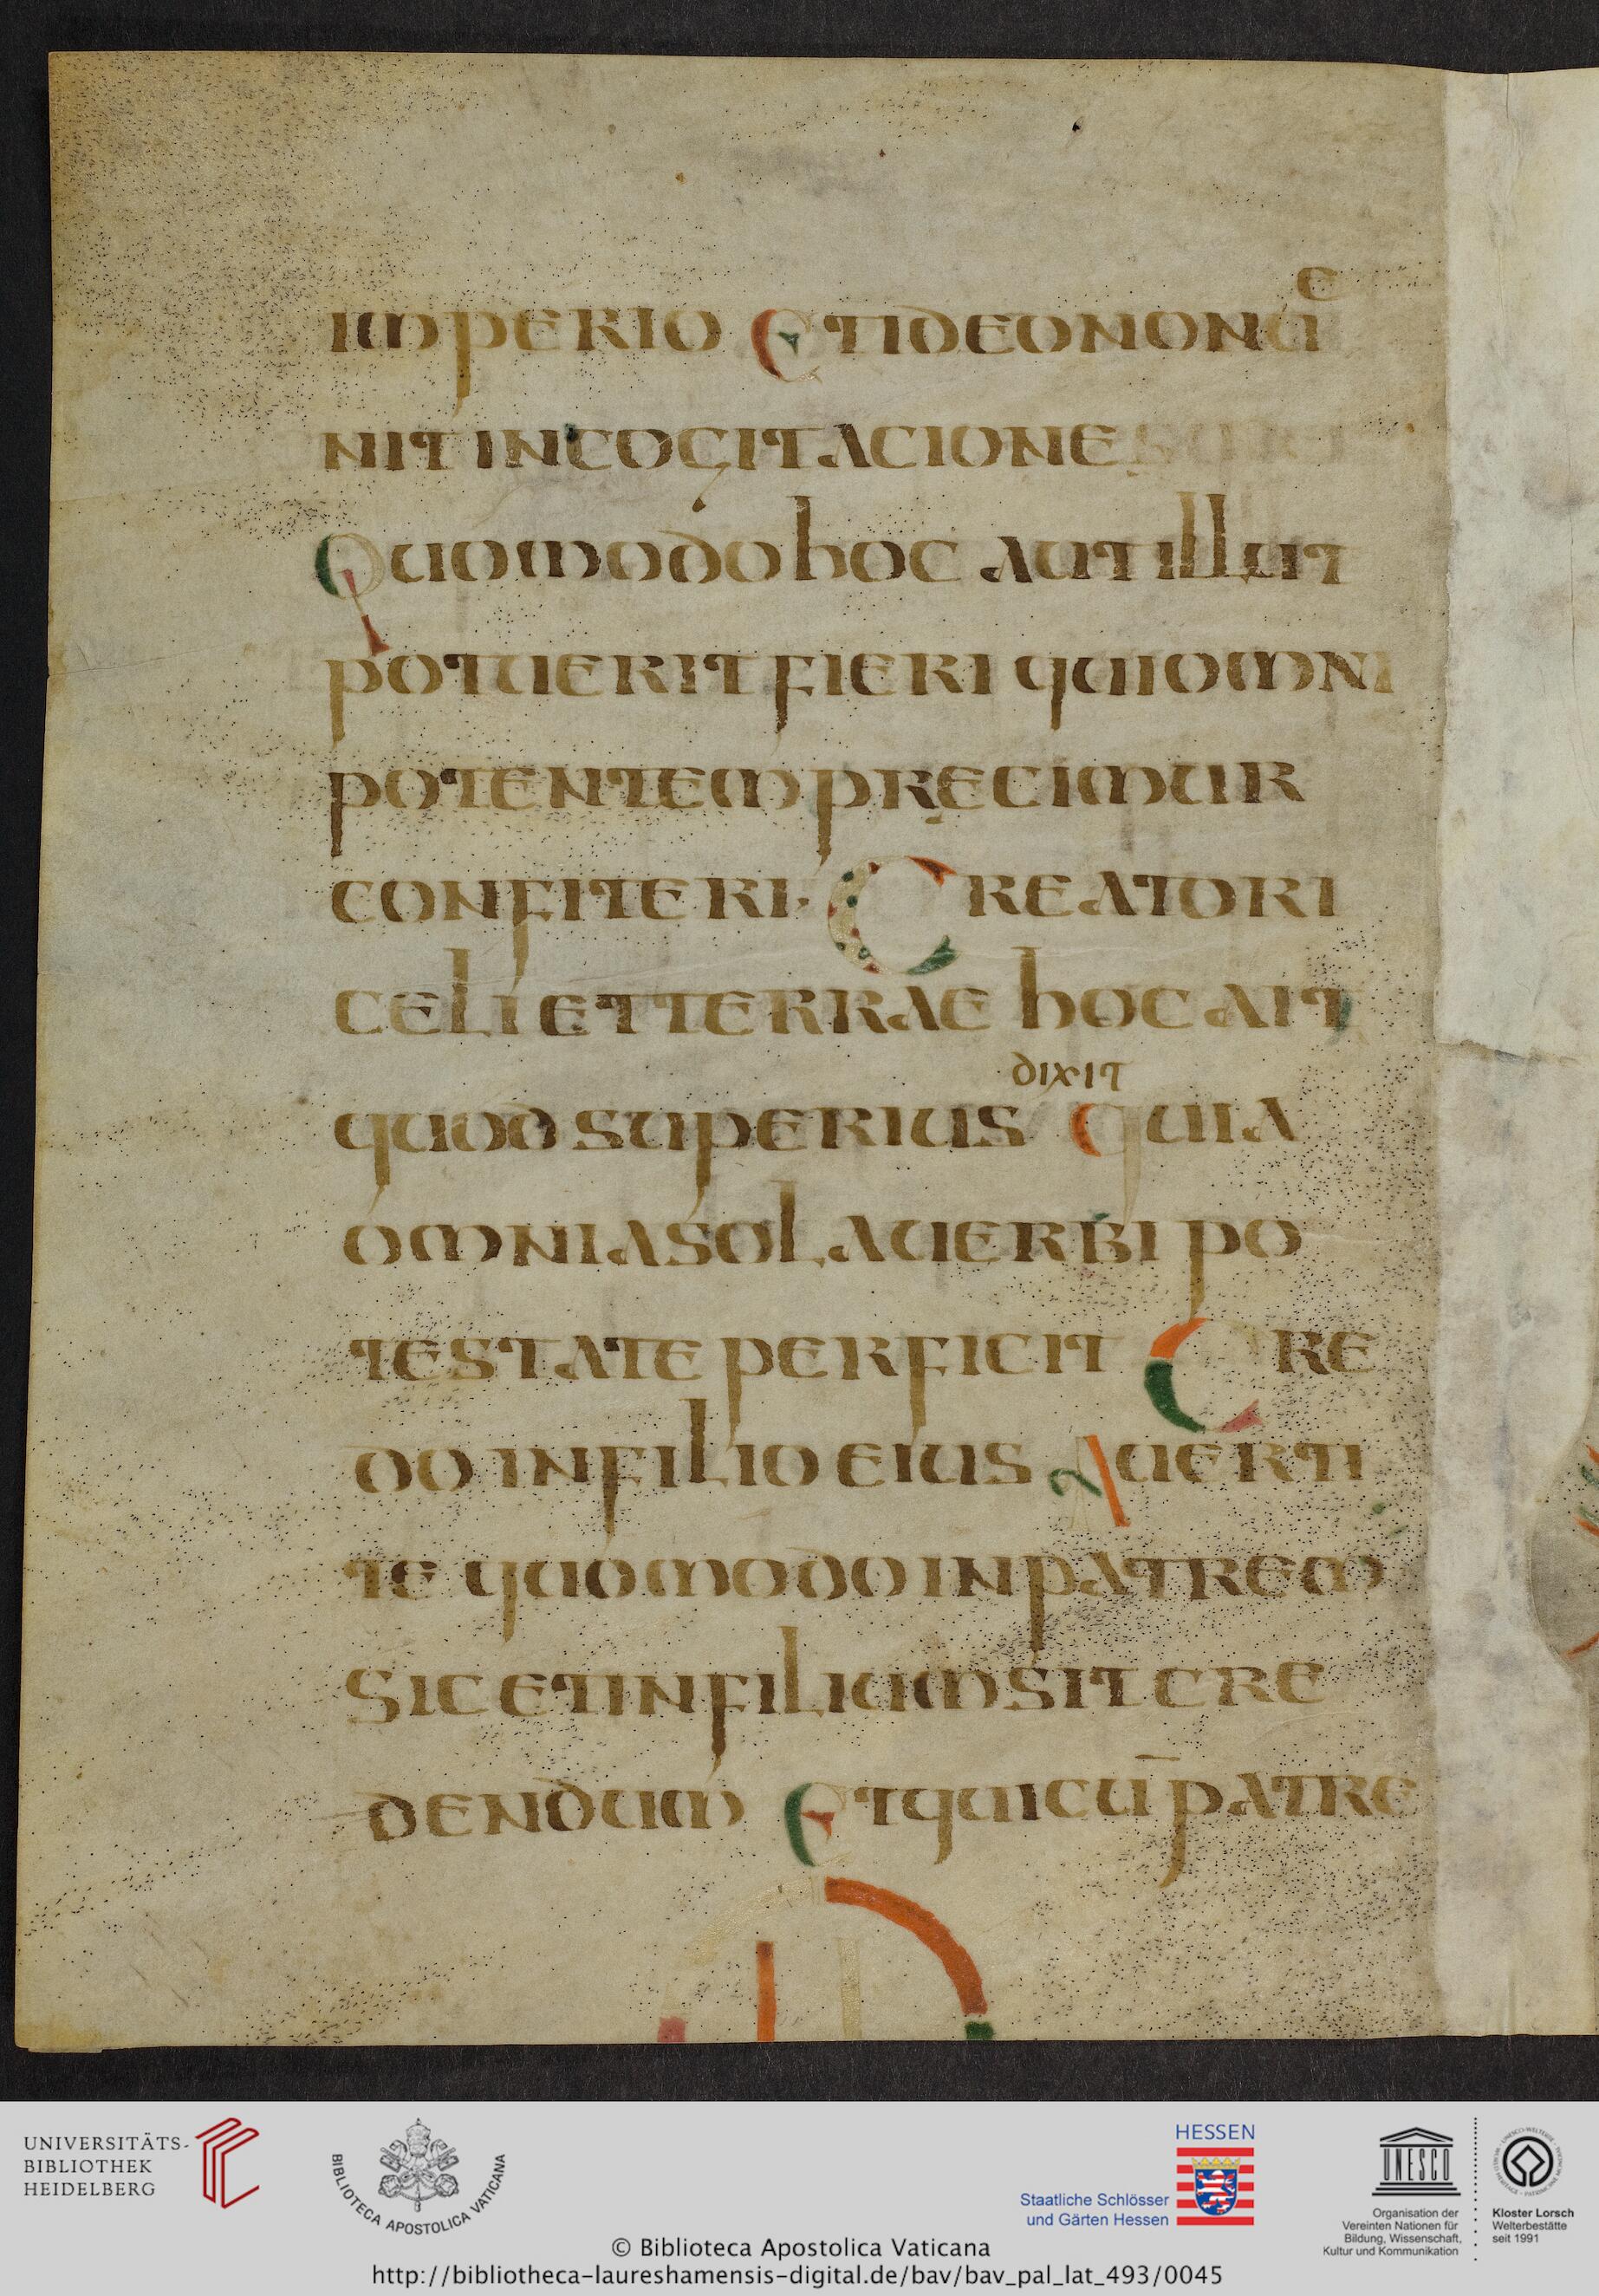 e
imperio Et ideo non ue
nit in cogitacione
Quomodo hoc aut illut
potuerit fieri qui omni
potentem precimur
confiteri. Creatori
celi et terrae hoc ait
dixit
quod superius quia
omnia sola uerbi po
testate perficit Cre
do in filio eius Auerti
te quomodo in patrem
sic et in filium sit cre
dendum Et qui cū patre
UNIVERSITÄTS-
BIBLIOTHEK
HEIDELBERG
BIBLIOTECA APOSTOLICA VATICANA
HESSEN
Staatliche Schlösser
und Gärten Hessen
UNESCO
Organisation der
Vereinten Nationen für
Bildung, Wissenschaft,
Kultur und Kommunikation
Kloster Lorsch
Welterbestätte
seit 1991
© Biblioteca Apostolica Vaticana
http://bibliotheca-laureshamensis-digital.de/bav/bav_pal_lat_493/0045